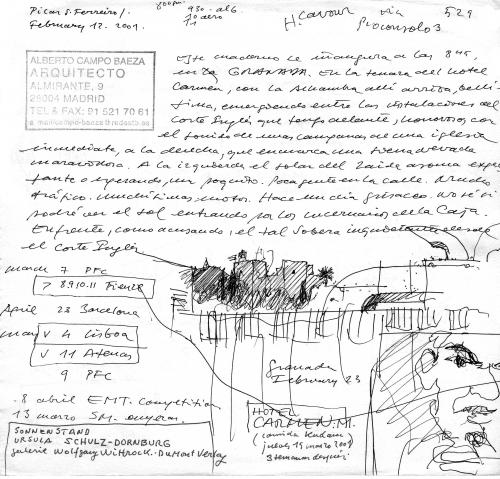 Picar S. Ferreiro/.
February 12. 2001.
H. Cavour via 529
Proconsolo 3
ALBERTO CAMPO BAEZA
ARQUITECTO
ALMIRANTE, 9
28004 MADRID
TEL & FAX: 91 521 70 61
Este cuaderno se inaugura a las 8
en GRANADA. En la terraza del hotel
Carmen, con la Alhambra allí arriba, bellí-
sima, emergiendo entre las instalaciones del
Corte Inglés que tengo delante, honorosos con
el sonido de unas campanas de una iglesia
inmediata, a la derecha, que enmarca una Sierra Nevada
maravillosa. A la izquierda el solar del Zaida asoma expec-
tante o esperando un poquito. Poca gente en la calle. Mucho
tráfico. Muchísimas motos. Hace un día grisáceo. No sé si
podré ver el sol entrando por los lucernarios de la Caja.
Enfrente, como acusando, el tal Sobera desde
el Corte Inglés
march 7 PFC
7 8 9 10.11 Firenze
April 23 Barcelona
may V 4 Lisboa
V 11 Atenas
9 PFC
8 abril EMT. Competition
13 marzo SM.
SONNENSTAND
URSULA SCHULZ-DORNBURG
galerie Wolfgang Wittrock. DuMont Verlag
Granada
February 23
HOTEL
CARMEN. M.
(comida
jueves 15 marzo 2001
3 semanas después)